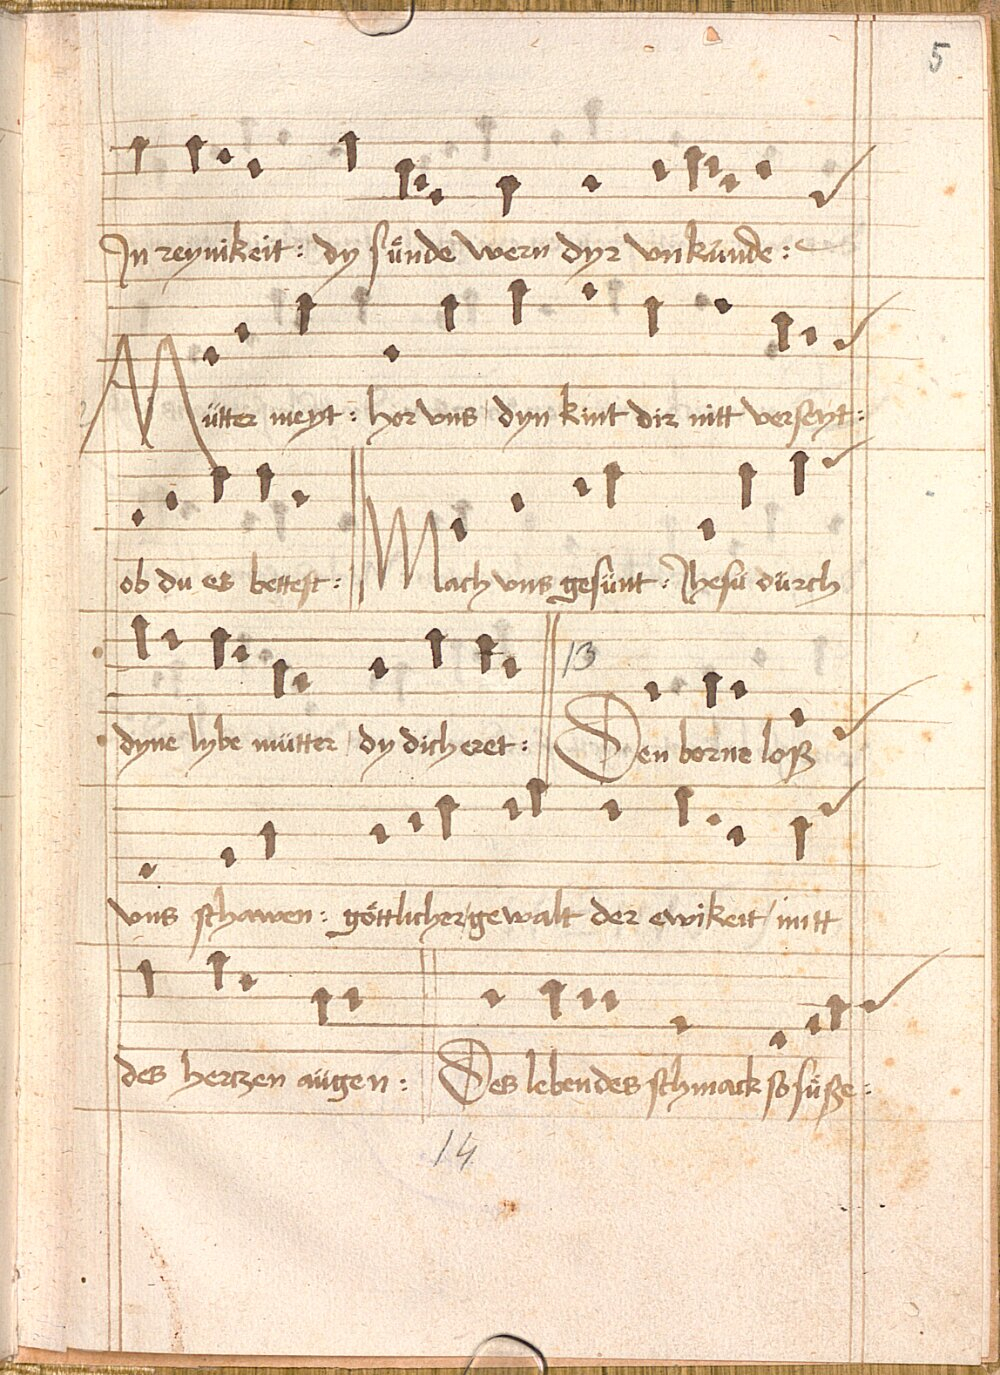 5
In reynikeit : dy sünde wern dyr vnkunde :
Mütter meyt : hor vns / dyn kint dir nitt verseyt :
ob du es bettest : Mach vns gesünt : Jhesu dürch
dyne lybe mütter / dy dich eret : 13 Den borne loß
vns schawen : göttlicher / gewalt der ewikeit / mitt
des hertzen aügen : Des lebendes schmack so süße :
14